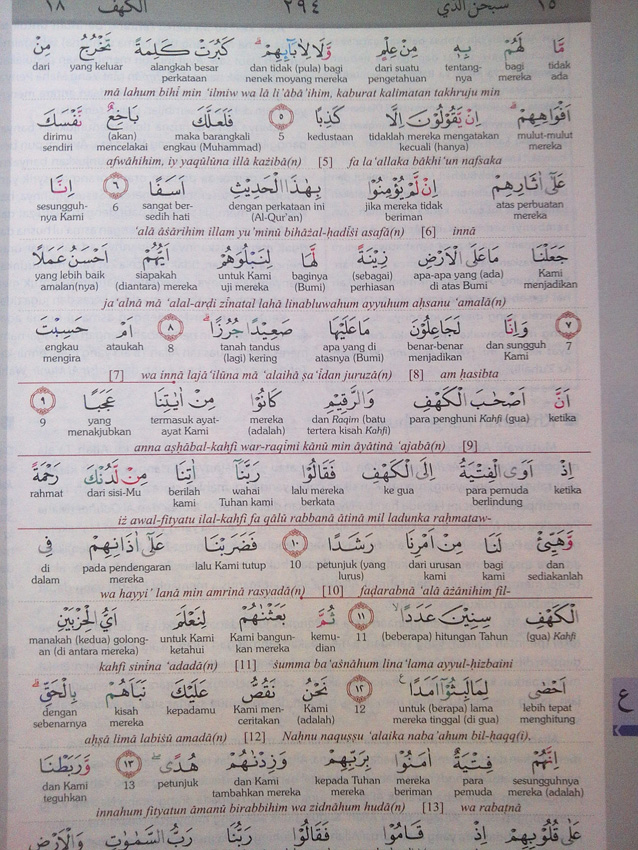 ١٥ سبحن الذي ٢٩٤ الكهف ١٨
مَّا لَهُمْ بِهٖ مِنْ عِلْمٍ وَّلَا لِاٰبَاۤىِٕهِمْۗ كَبُرَتْ كَلِمَةً تَخْرُجُ مِنْ
tidak bagi tentang- dari suatu dan tidak (pula) bagi alangkah besar yang keluar dari
ada mereka nya pengetahuan nenek moyang mereka perkataan
mā lahum bihī min ‘ilmiw wa lā li ābā'ihim, kaburat kalimatan takhruju min
اَفْوَاهِهِمْۗ اِنْ يَّقُوْلُوْنَ اِلَّا كَذِبًا ٥ فَلَعَلَّكَ بَاخِعٌ نَّفْسَكَ
mulut-mulut tidaklah mereka mengatakan kedustaan 5 maka barangkali (akan) dirimu
mereka kecuali (hanya) engkau (Muhammad) mencelakai sendiri
afwāhihim, iy yaqūlūna illā każiba(n) [5] fa la‘allaka bākhi‘un nafsaka
عَلٰٓى اٰثَارِهِمْ اِنْ لَّمْ يُؤْمِنُوْا بِهٰذَا الْحَدِيْثِ اَسَفًا ٦ اِنَّا
atas perbuatan jika mereka tidak dengan perkataan ini sangat ber- 6 sesungguh-
mereka beriman (Al-Qur'an) sedih hati nya Kami
‘alā āṡārihim illam yu'minū bihāżal-ḥadīṡi asafā(n) [6] innā
جَعَلْنَا مَا عَلَى الْاَرْضِ زِيْنَةً لَّهَا لِنَبْلُوَهُمْ اَيُّهُمْ اَحْسَنُ عَمَلًا
Kami apa-apa yang (ada) (sebagai) baginya untuk Kami siapakah yang lebih baik
menjadikan di atas Bumi perhiasan (Bumi) uji mereka (diantara) mereka amalan(nya)
ja‘alnā mā ‘alal-arḍi zīnatal lahā linabluwahum ayyuhum aḥsanu ‘amalā(n)
٧ وَاِنَّا لَجَاعِلُوْنَ مَا عَلَيْهَا صَعِيْدًا جُرُزًاۗ ٨ اَمْ حَسِبْتَ
7 dan sungguh benar-benar apa yang di tanah tandus 8 ataukah engkau
Kami menjadikan atasnya (Bumi) (lagi) kering mengira
[7] wa innā lajā‘ilūna mā ‘alaihā ṣa‘īdan juruzā(n) [8] am ḥasibta
اَنَّ اَصْحٰبَ الْكَهْفِ وَالرَّقِيْمِ كَانُوْا مِنْ اٰيٰتِنَا عَجَبًا ٩
ketika para penghuni Kahfi (gua) dan Raqim (batu mereka termasuk ayat- yang 9
tertera kisah Kahfi) (adalah) ayat Kami menakjubkan
anna aṣḥābal-kahfi war-raqīmi kānū min āyātinā ‘ajabā(n) [9]
اِذْ اَوَى الْفِتْيَةُ اِلَى الْكَهْفِ فَقَالُوْا رَبَّنَآ اٰتِنَا مِنْ لَّدُنْكَ رَحْمَةً
ketika para pemuda ke gua lalu mereka wahai berilah dari sisi-Mu rahmat
berlindung berkata Tuhan kami kami
iż awal-fityatu ilal-kahfi fa qālū rabbanā ātinā mil ladunka raḥmataw-
وَّهَيِّئْ لَنَا مِنْ اَمْرِنَا رَشَدًا ١٠ فَضَرَبْنَا عَلٰٓى اٰذَانِهِمْ فِى
dan bagi dari urusan petunjuk (yang 10 lalu Kami tutup pada pendengaran di
sediakanlah kami kami lurus) mereka dalam
wa hayyi' lanā min amrinā rasyadā(n) [10] faḍarabnā ‘alā āżānihim fil-
الْكَهْفِ سِنِيْنَ عَدَدًاۙ ١١ ثُمَّ بَعَثْنٰهُمْ لِنَعْلَمَ اَيُّ الْحِزْبَيْنِ
(gua) Kahfi (beberapa) hitungan Tahun 11 kemu- Kami bangun- untuk Kami manakah (kedua) golong-
dian kan mereka ketahui an (di antara mereka)
kahfi sinīna ‘adadā(n) [11] ṡumma ba‘aṡnāhum lina‘lama ayyul-ḥizbaini
اَحْصٰى لِمَا لَبِثُوْٓا اَمَدًا ١٢ نَحْنُ نَقُصُّ عَلَيْكَ نَبَاَهُمْ بِالْحَقِّۗ
lebih tepat untuk (berapa) lama 12 Kami Kami men- kepadamu kisah dengan
menghitung mereka tinggal (di gua) (adalah) ceritakan mereka sebenarnya
aḥṣā limā labiṡū amadā(n) [12] Naḥnu naquṣṣu ‘alaika naba'ahum bil-ḥaqq(i),
اِنَّهُمْ فِتْيَةٌ اٰمَنُوْا بِرَبِّهِمْ وَزِدْنٰهُمْ هُدًىۖ ١٣ وَّرَبَطْنَا
sesungguhnya para mereka kepada Tuhan dan Kami petunjuk 13 dan Kami
mereka (adalah) pemuda beriman mereka tambahkan mereka teguhkan
innahum fityatun āmanū birabbihim wa zidnāhum hudā(n) [13] wa rabaṭnā
عَلٰى قُلُوْبِهِمْ اِذْ قَامُوْا فَقَالُوْا رَبُّنَا رَبُّ السَّمٰوٰتِ وَالْاَرْضِ
ع